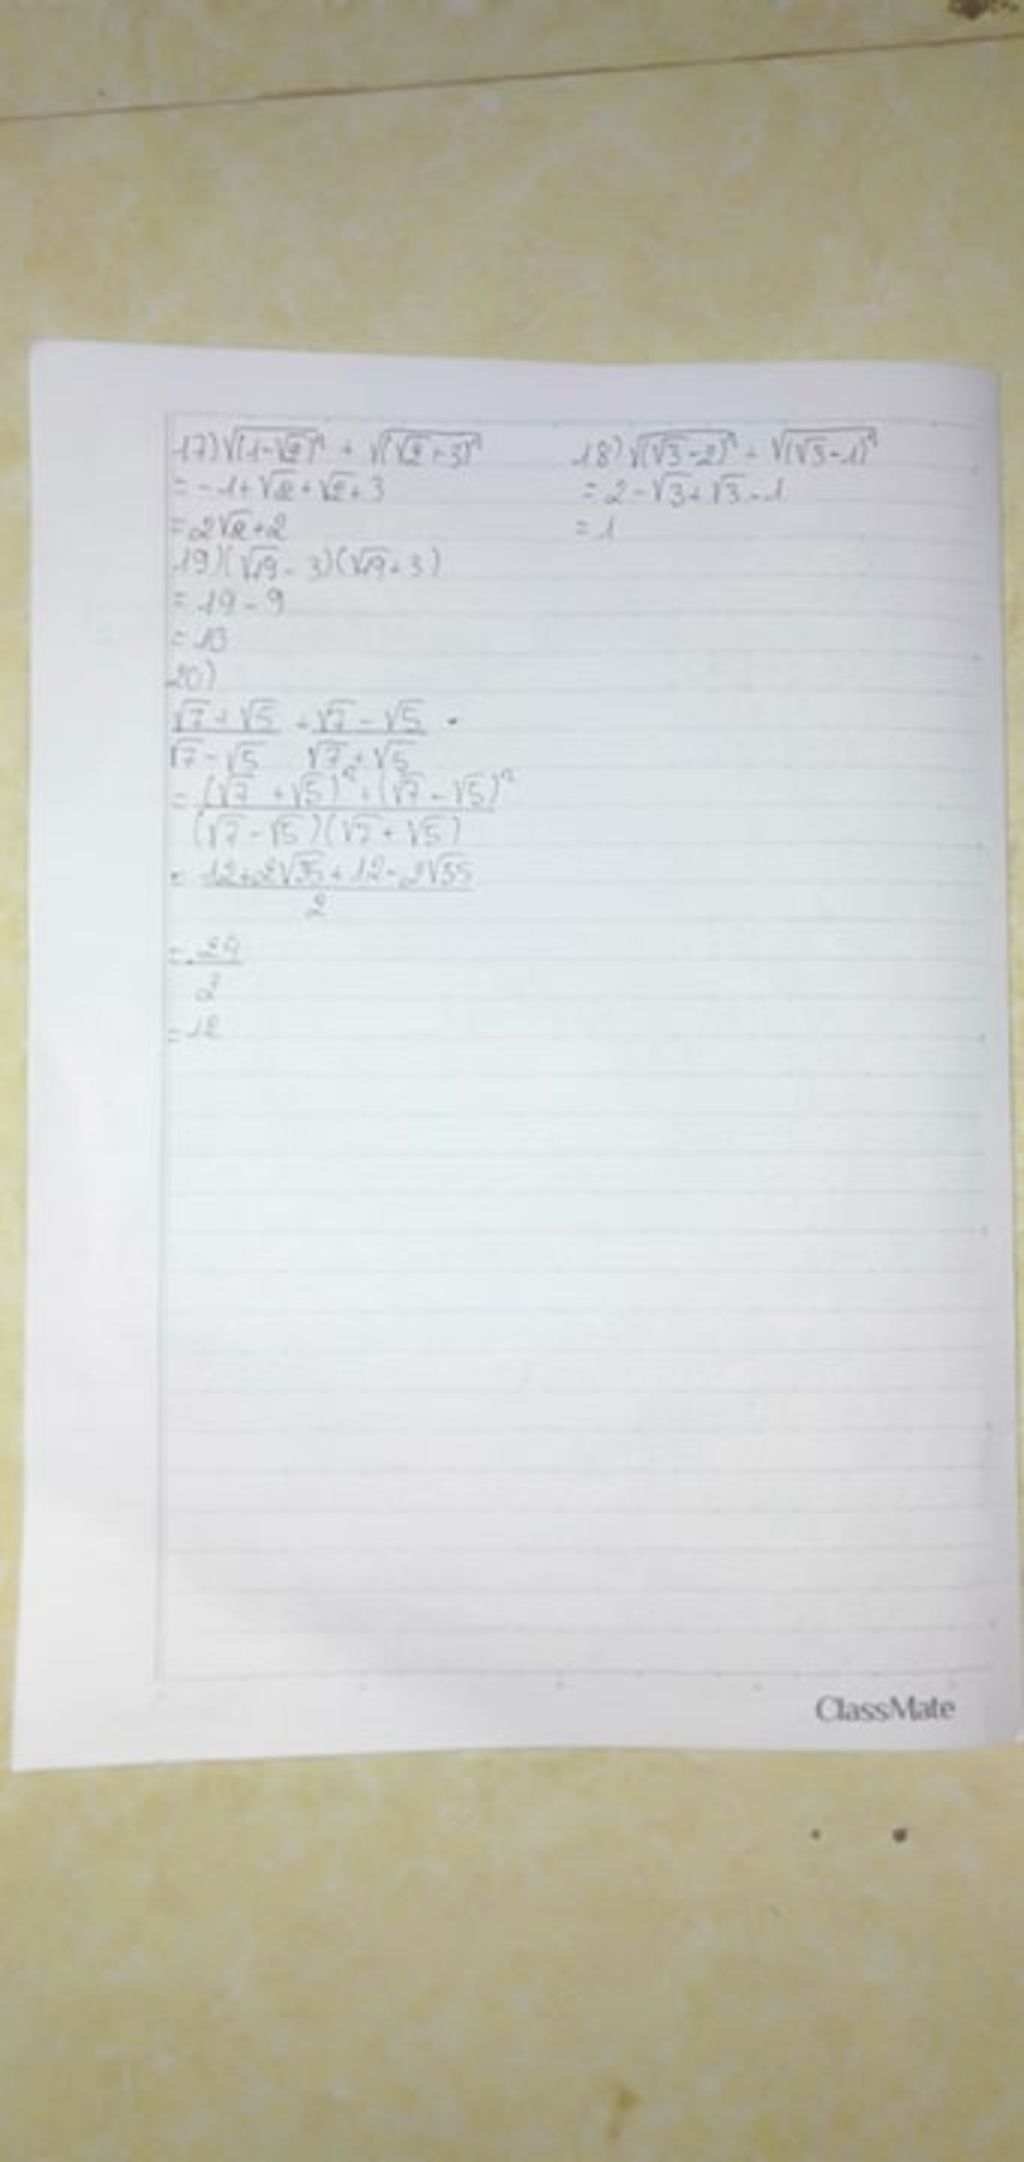 17) √(1-√2)² + √(√2+3)²
= -1+√2+√2+3
= 2√2+2
18) √(√3-2)² + √(√3-1)²
= 2-√3+√3-1
= 1
19) (√19-3)(√19+3)
= 19-9
= 10
20)
(√7+√5)/(√7-√5) + (√7-√5)/(√7+√5)
= ((√7+√5)²+(√7-√5)²)/((√7-√5)(√7+√5))
= (12+2√35+12-2√35)/2
= 24/2
= 12
ClassMate